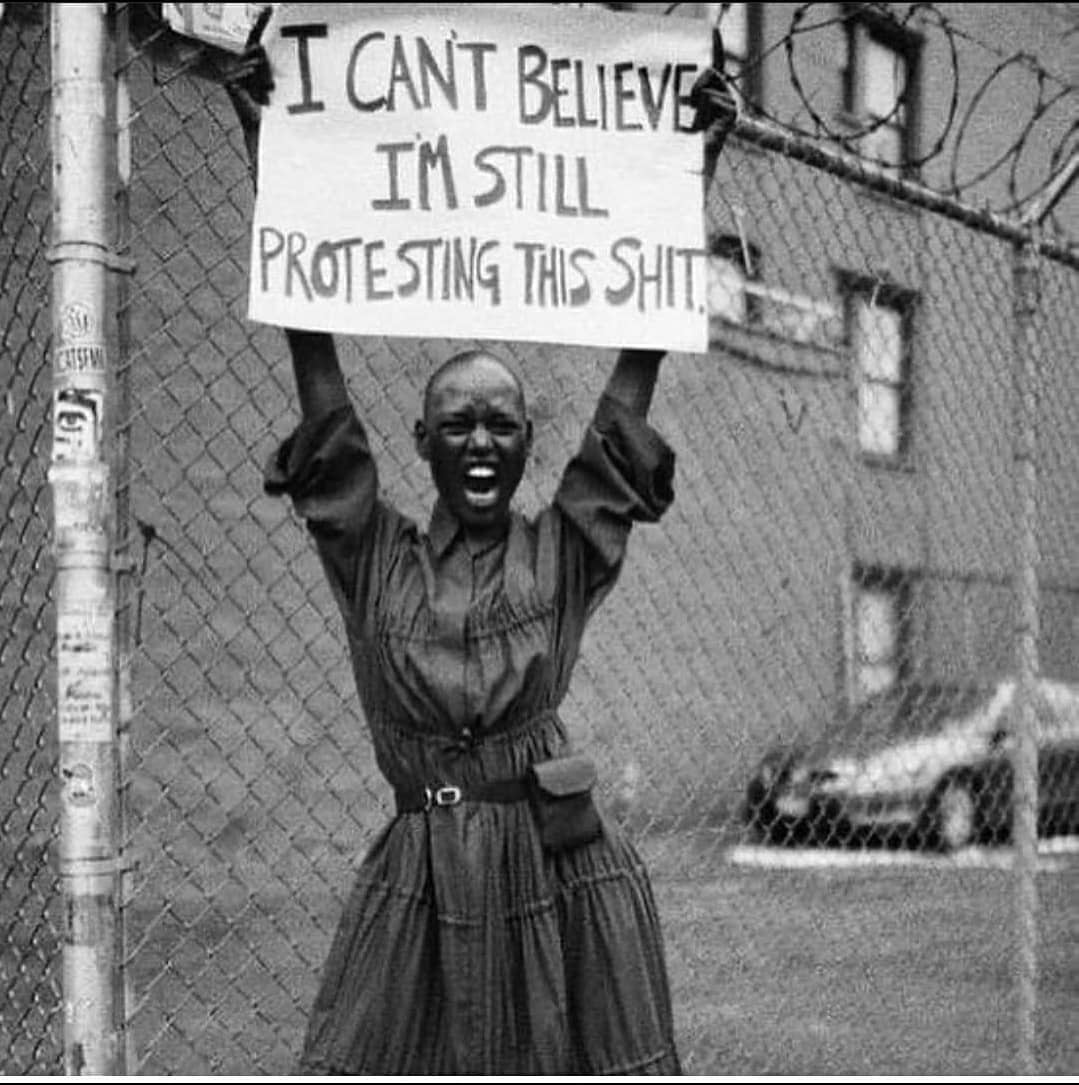 I CAN'T BELIEVE
I'M STILL
PROTESTING THIS SHIT.